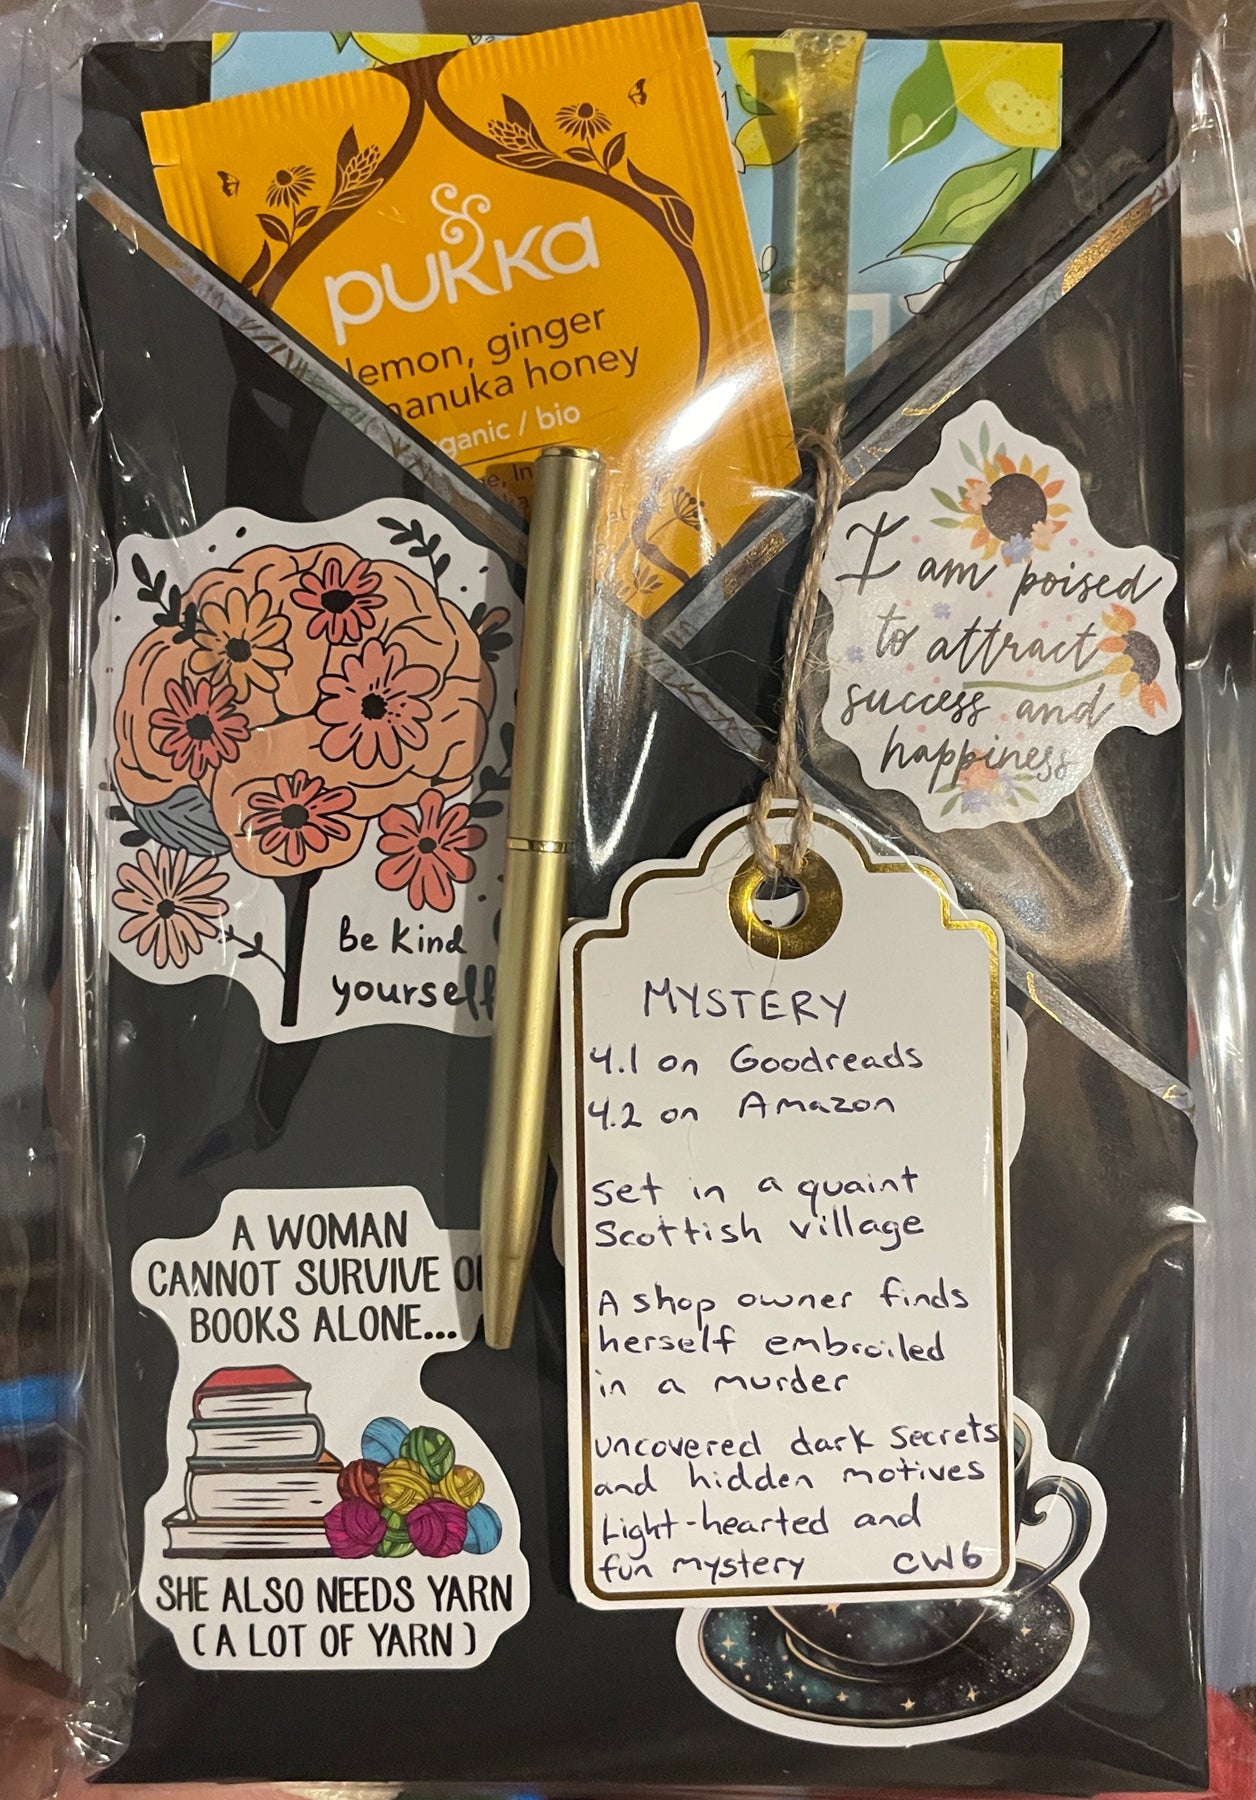 pukka
lemon, ginger
manuka honey
organic / bio
I am poised
to attract
success and
happiness
be kind
yourself
MYSTERY
4.1 on Goodreads
4.2 on Amazon
set in a quaint
Scottish village
A shop owner finds
herself embroiled
in a murder
uncovered dark secrets
and hidden motives
Light-hearted and
fun mystery CW6
A WOMAN
CANNOT SURVIVE ON
BOOKS ALONE...
SHE ALSO NEEDS YARN
(A LOT OF YARN)